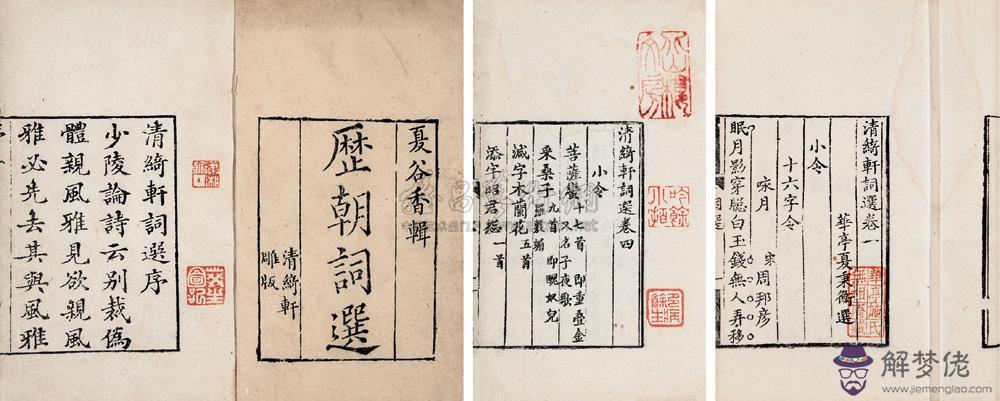 夏谷香輯
歴朝詞選
清綺軒
雕版
清綺軒詞選序
少陵論詩云别裁偽
體親風雅見欲親風
雅必先去其與風雅
清綺軒詞選卷四
小令
菩薩蠻十七首 又名子夜歌 即重疊金
采桑子九首 即醜奴兒 羅敷媚
減字木蘭花五首
添字昭君怨一首
清綺軒詞選卷一
華亭夏秉衡選
小令
十六字令
咏月 宋 周邦彦
眠月影穿牕白玉錢無人弄移
華亭施氏
無相庵藏
解梦佬
www.jiemenglao.com